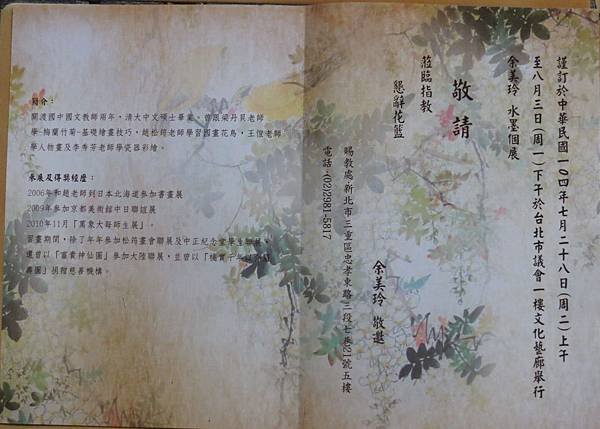 謹訂於中華民國一０四年七月二十八日(周二)上午
至八月三日(周一)下午於台北市議會一樓文化藝廊舉行
余美玲 水墨個展
敬請
蒞臨指教
懇辭花籃
余美玲 敬邀
賜教處:新北市三重區忠孝東路三段七巷21號五樓
電話:(02)2981-5817
簡介:
關渡國中國文教師兩年,清大中文碩士畢業。曾跟梁丹貝老師
學-梅蘭竹菊-基礎繪畫技巧,趙松筠老師學習國畫花鳥,王愷老師
學人物畫及李秀芳老師學瓷器彩繪。
參展及得獎經歷:
2006年和趙老師到日本北海道參加書畫展
2009年參加京都美術館中日聯誼展
2010年11月「萬象大每師生展」。
習畫期間,除了年年參加松筠畫會聯展及中正紀念堂學生聯展,
還曾以「富貴神仙圖」參加大陸聯展,並曾以「桃實千年
壽圖」捐贈慈善機構。